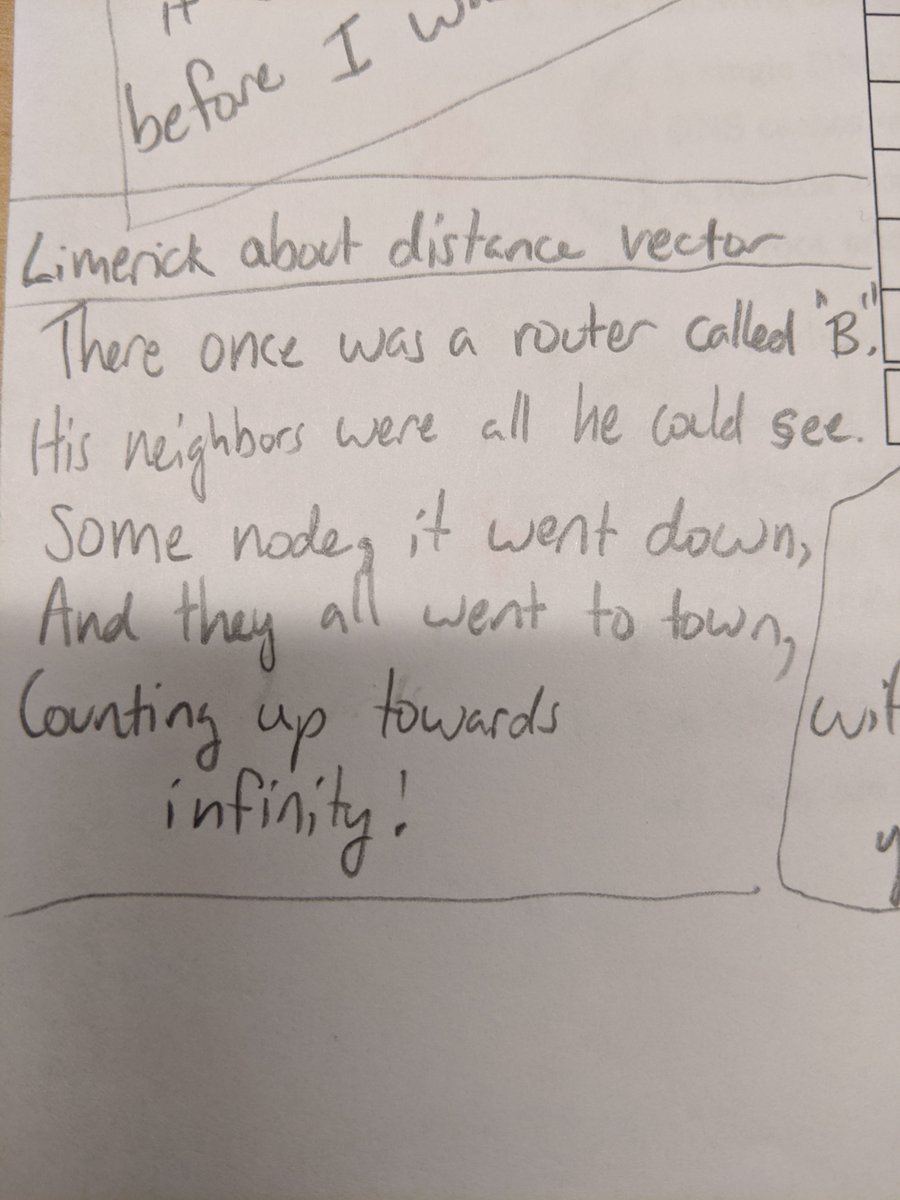 it
before I
Limerick about distance vector
There once was a router called "B".
His neighbors were all he could see.
Some node, it went down,
And they all went to town,
Counting up towards
infinity!